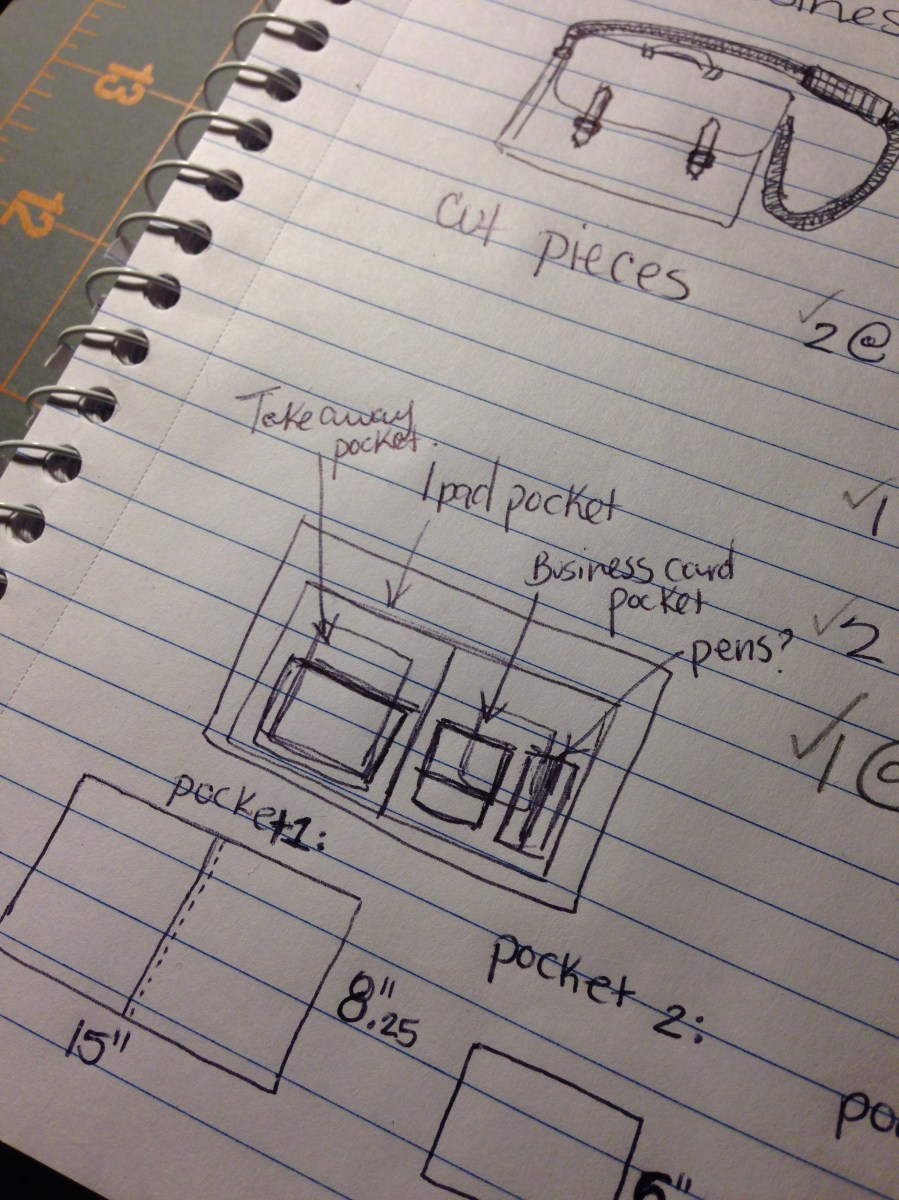 13
12
cut pieces
✓2@
Takeaway
pocket.
Ipad pocket
✓1
Business card
pocket
✓2
pens?
✓1@
pocket1:
8"
.25
15"
pocket 2:
6"